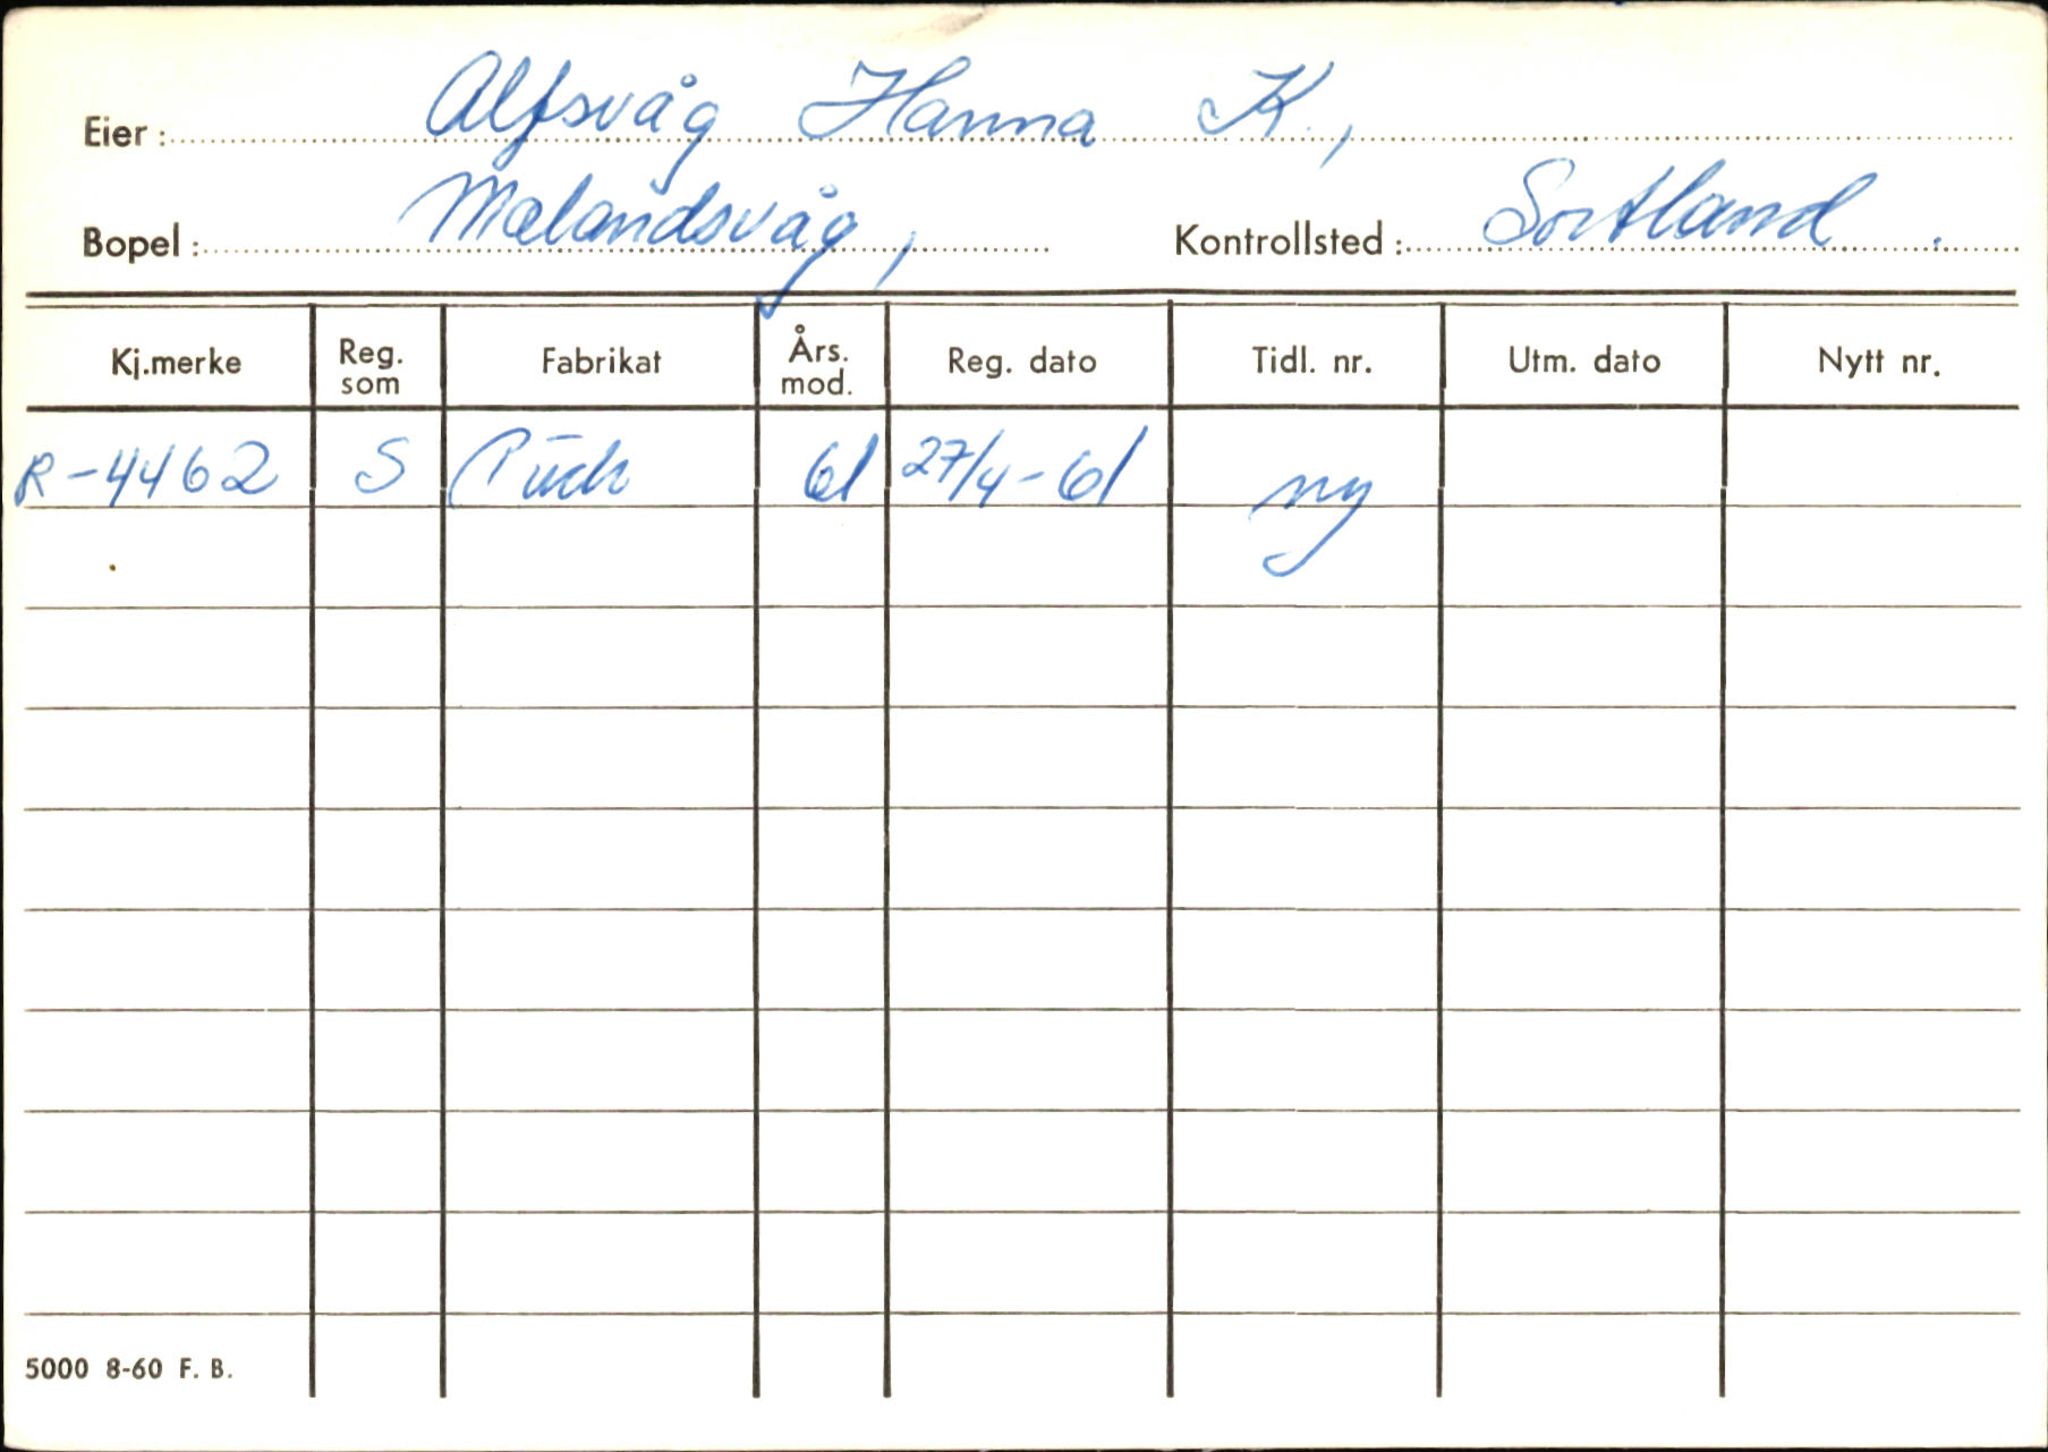 Eier: Alfsvåg Hanna K.,
Bopel: Mælandsvåg, Kontrollsted: Sortland.
Kj.merke Reg. som Fabrikat Års. mod. Reg. dato Tidl. nr. Utm. dato Nytt nr.
R-4462 S Puch 61 27/4-61 ny
5000 8-60 F. B.